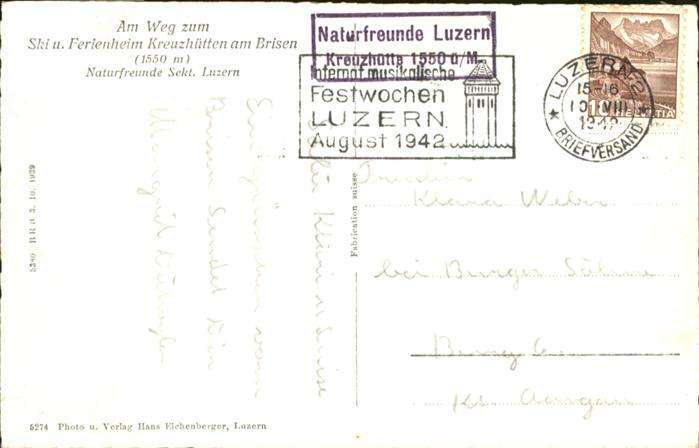 Am Weg zum
Ski u. Ferienheim Kreuzhütten am Brisen
(1550 m)
Naturfreunde Sekt. Luzern
Naturfreunde Luzern
Kreuzhütte 1550 ü/M.
Internat. musikalische
Festwochen
LUZERN
August 1942
LUZERN 2
15-16
10. VIII
1942
BRIEFVERSAND
10 HELVETIA
5380 BRB 3. 10. 1939
Fabrication suisse
Klara Weber
bei Burger Söhne
Burg
Kt. Aargau
Klärli
vom
Brisen sendet Dir
5274 Photo u. Verlag Hans Eichenberger, Luzern